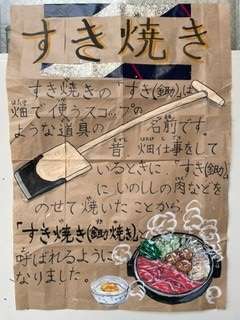 すき焼き
すき焼きの「すき(鋤)」は
畑で使うスコップの
ような道具の 名前です。
昔、畑仕事をして
いるときに「すき(鋤)」
にいのししの肉などを
のせて焼いたことから
「すき焼き(鋤焼き)」と
呼ばれるように
なりました。